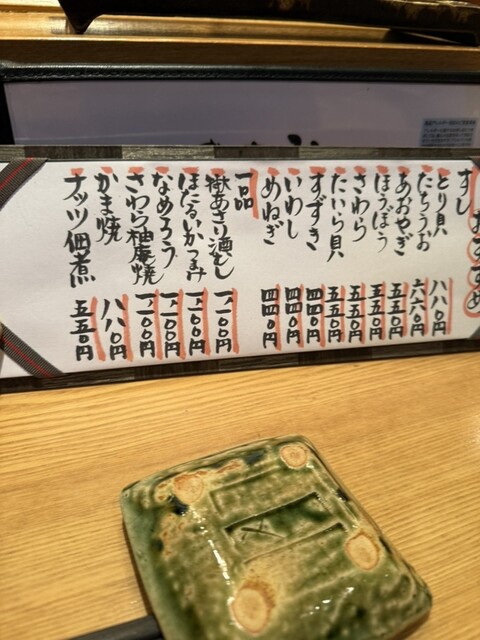 おすすめ
すし
とり貝 八八〇円
たちうお 六六〇円
あおやぎ 五五〇円
ほうぼう 五五〇円
さわら 五五〇円
たいら貝 五五〇円
すずき 四四〇円
いわし 四四〇円
めねぎ 四四〇円
一品
あさり酒むし 一一〇〇円
ほたるいかつまみ 一一〇〇円
なめろう 一一〇〇円
さわら柚庵焼 一一〇〇円
かま焼 八八〇円
ナッツ佃煮 五五〇円